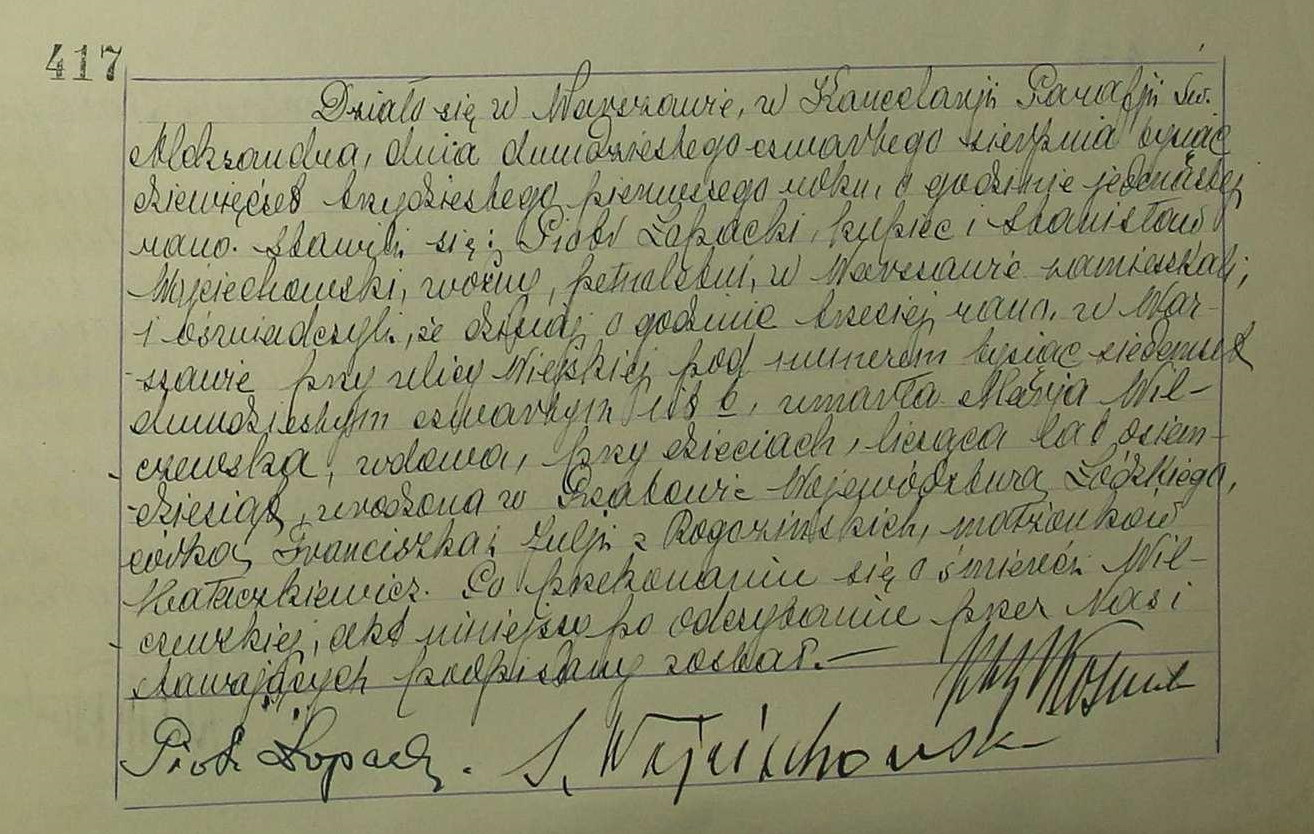 417
Działo się w Warszawie, w Kancelarji Parafji Św.
Aleksandra, dnia dwudziestego czwartego sierpnia tysiąc
dziewięćset trzydziestego pierwszego roku, o godzinie jedenastej
rano. Stawili się: Piotr Łopacki, kupiec i Stanisław
Wojciechowski, woźny, pełnoletni, w Warszawie zamieszkali,
i oświadczyli, że dzisiaj o godzinie trzeciej rano, w War-
-szawie przy ulicy Wiejskiej pod numerem tysiąc siedemset
dwudziestym czwartym lit b, umarła Marja Wil-
-czewska, wdowa, przy dzieciach, licząca lat osiem-
-dziesiąt, urodzona w Województwa Łódzkiego,
córka Franciszka i Julji z Rogozińskich, małżonków
Po przekonaniu się o śmierci Wil-
-czewskiej, akt niniejszy po odczytaniu przez Nas i
stawających podpisany został.—
Piotr Łopacki. S. Wojciechowski